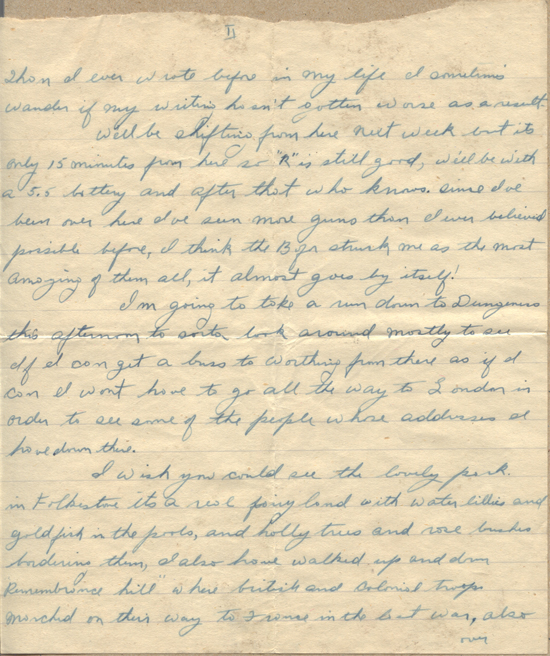 II
than I ever wrote before in my life I sometimes
wander if my writing hasn't gotten worse as a result.
Well be shifting from here next week but its
only 15 minutes from here so "R" is still good, will be with
a 5.5 battery and after that who knows. since I've
been over here I've seen more guns than I ever believed
possible before, I think the Bofor struck me as the most
amazing of them all, it almost goes by itself!
I'm going to take a run down to Dungeness
this afternoon to sorta look around mostly to see
if I can get a buss to Worthing from there as if I
can I wont have to go all the way to London in
order to see some of the people whose addresses I
have down there.
I wish you could see the lovely park.
in Folkestone its a real fairyland with water lillies and
goldfish in the pools, and holly trees and rose bushes
bordering them, I also have walked up and down
Remembrance hill" where british and Colonial troops
marched on their way to France in the last war, also
over